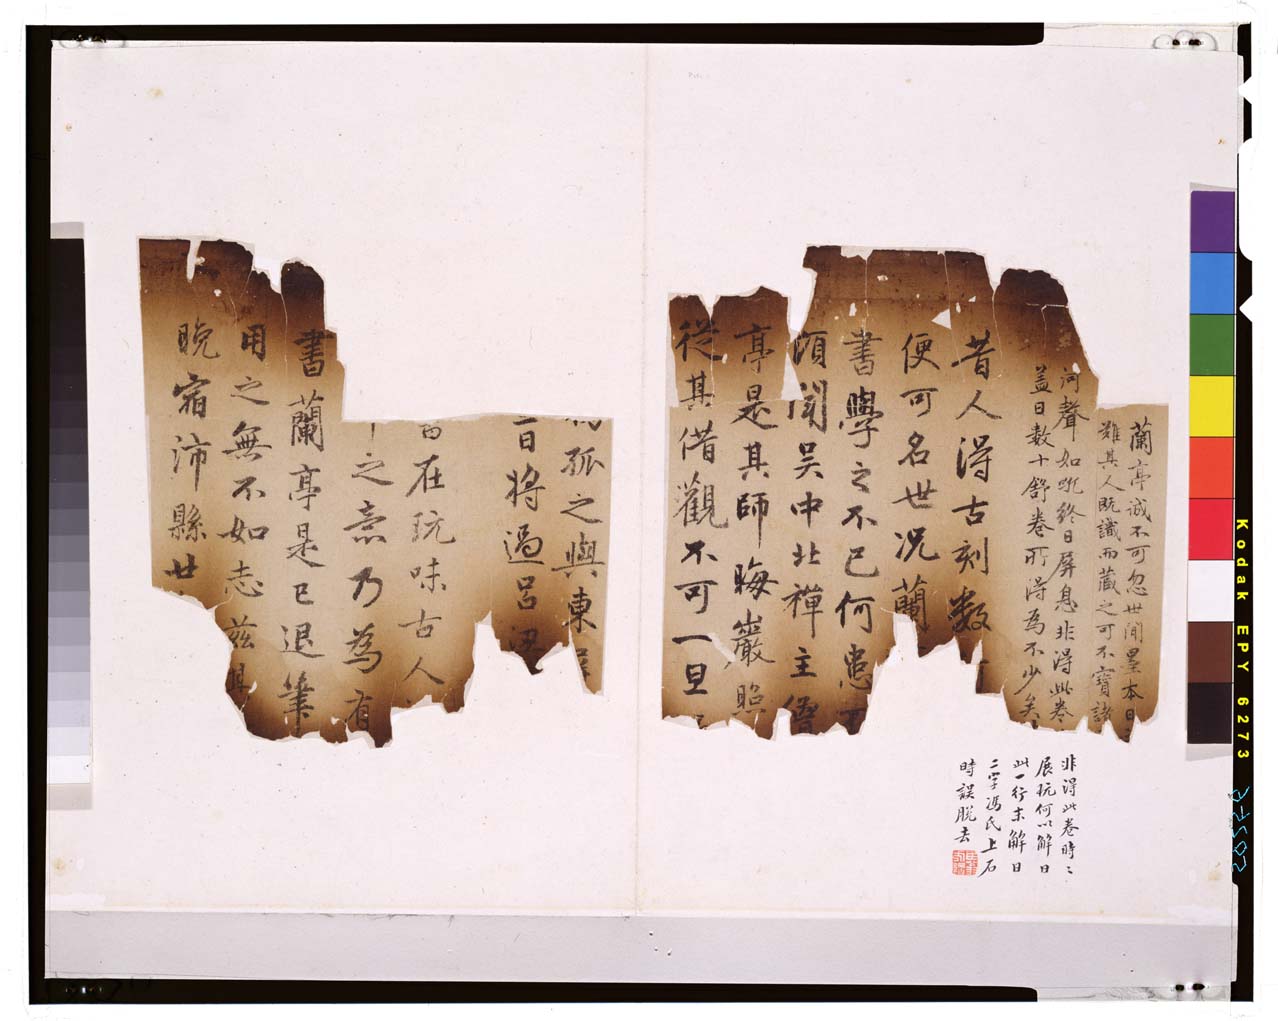 蘭亭誠不可忽世間墨本日
難其人既識而藏之可不寶諸
河聲如吼終日屏息非得此卷
蓋日數十舒卷所得為不少矣
昔人得古刻數
便可名世况蘭
書學之不已何患
須聞吴中北禪主僧
亭是其師晦巖照
從其借觀不可一旦
孤之與東屏
日將過呂
在玩味古人
之意乃為有
書蘭亭是已退筆
用之無不如志茲
晚宿沛縣廿
非得此卷時時
展玩何以解日
此一行末解日
二字馮氏上石
時誤脱去
Kodak EPY 6273